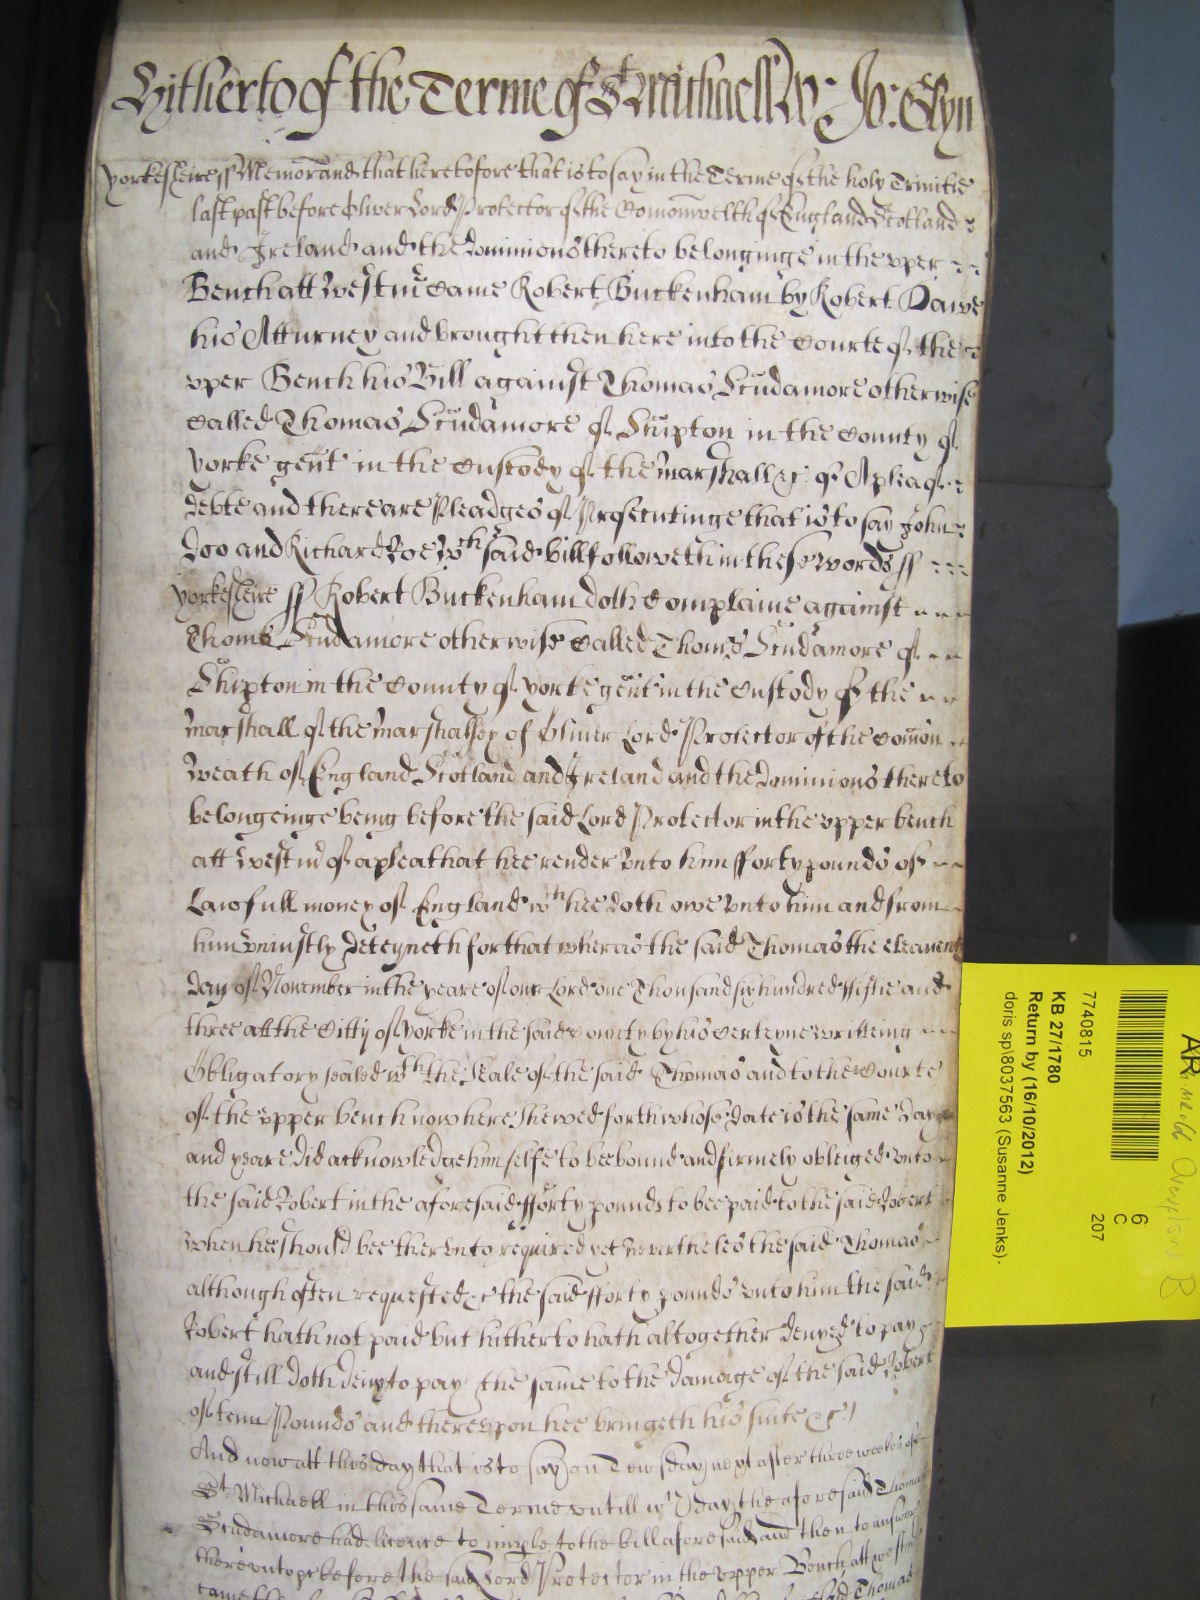 Hitherto of the Terme of St Michaell W: Jo: Glyn
Yorkesheire ss Memorand that heretofore that is to say in the Terme of the holy Trinitie
last past before Oliver Lord Protector of the Comonwelth of England Scotland
and Ireland and the dominions thereto belonginge in the vper
Bench att Westm Came Robert Buckenham by Robert Dawe
his Atturney and brought then here into the Courte of the
vper Bench his Bill against Thomas Scudamore otherwise
Called Thomas Scudamore of Skipton in the County of
Yorke gent in the Custody of the Marshall &c of A plea of
debte and there are Pleadges of Prosecutinge that is to say John
Doo and Richard Roe wch said bill followeth in these words ss
Yorkesheire ss Robert Buckenham doth Complaine against
Thomas Scudamore otherwise Called Thomas Scudamore of
Skipton in the County of Yorke gent in the Custody of the
Marshall of the Marshalsey of Oliver Lord Protector of the Comon
Weath of England Scotland and Ireland and the Dominions thereto
belongeinge being before the said Lord Protector in the vpper bench
att Westm of a plea that hee render vnto him fforty pounds of
Lawfull money of England wch hee doth owe vnto him and from
him vniustly deteyneth for that wheras the said Thomas the eleaventh
day of November in the yeare of our Lord one Thousand six hundred ffiftie and
three att the Citty of Yorke in the said County by his Certeyne writteing
Obligatory sealed wth the Seale of the said Thomas and to the Courte
of the vpper bench now here shewed forth whose date is the same day
and yeare did acknowledge himselfe to bee bound and firmely obleiged vnto
the said Robert in the aforesaid fforty pounds to bee paid to the said Robert
when hee should bee there vnto required yet nevertheles the said Thomas
although often requested &c the said fforty pounds vnto him the said
Robert hath not paid but hitherto hath altogether denyed to pay
and still doth deny to pay the same to the damage of the said Robert
of tenn Pounds and therevpon hee bringeth his suite &c
And now att this day that is to say on Tewsday next after three weekes of
St. Michaell in this same Terme vntill wch day the aforesaid Thomas
Scudamore had licence to imple to the bill aforesaid and then to answer
therevnto &c before the said Lord Protector in the vpper Bench att Westm
said Thomas
7740815
KB 27/1780
Return by (16/10/2012)
doris sp\8037563 (Susanne Jenks).
6
C
207
AR